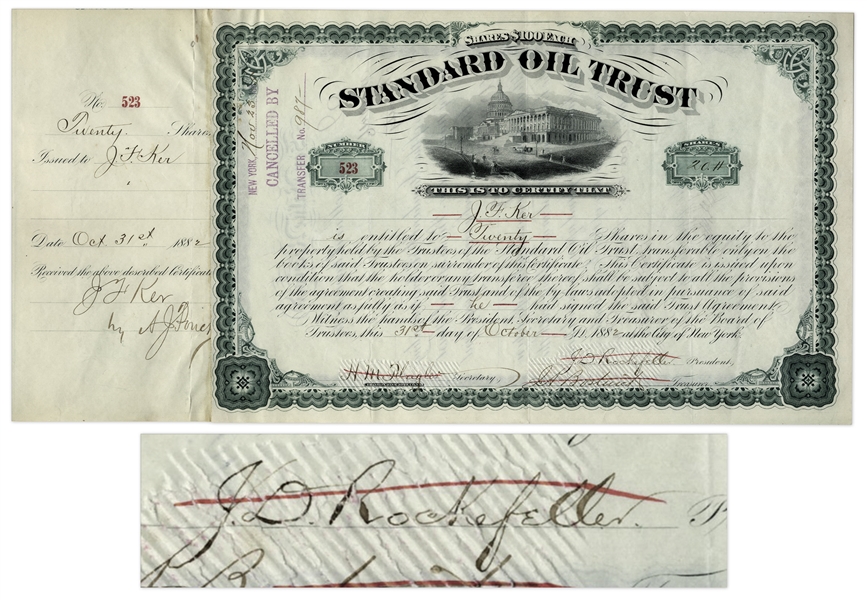 No. 523
Twenty Shares
Issued to J F Ker
Date Oct 31st 1882
Received the above described Certificate
J F Ker
by
NEW YORK, Nov 25
CANCELLED BY
TRANSFER No. 987
SHARES $100 EACH
STANDARD OIL TRUST
NUMBER
523
SHARES
20
THIS IS TO CERTIFY THAT
J F Ker
is entitled to Twenty Shares in the equity to the
property held by the Trustees of the Standard Oil Trust, transferable only on the
books of said Trustees on surrender of this Certificate. This Certificate is issued upon
condition that the holder or any transferee hereof shall be subject to all the provisions
of the agreement creating said Trust and of the by-laws adopted in pursuance of said
agreement as fully as if he had signed the said Trust Agreement.
Witness the hands of the President, Secretary and Treasurer of the Board of
Trustees, this 31st day of October A.D. 1882 at the City of New York.
J.D. Rockefeller President,
Secretary
Treasurer
J.D. Rockefeller. P